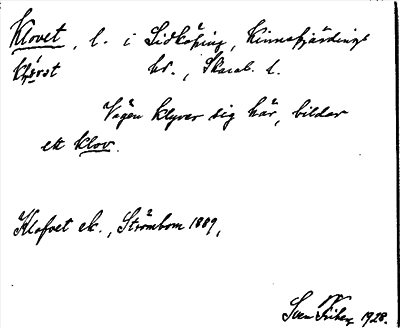 Klovet, l. i Lidköping, Kinnefjärdings
hr., Skarab. l.
Vägen klyver sig här, bildar
ett klov.
Klofvet ek., Strömbom 1889,
Sven Friberg 1928.